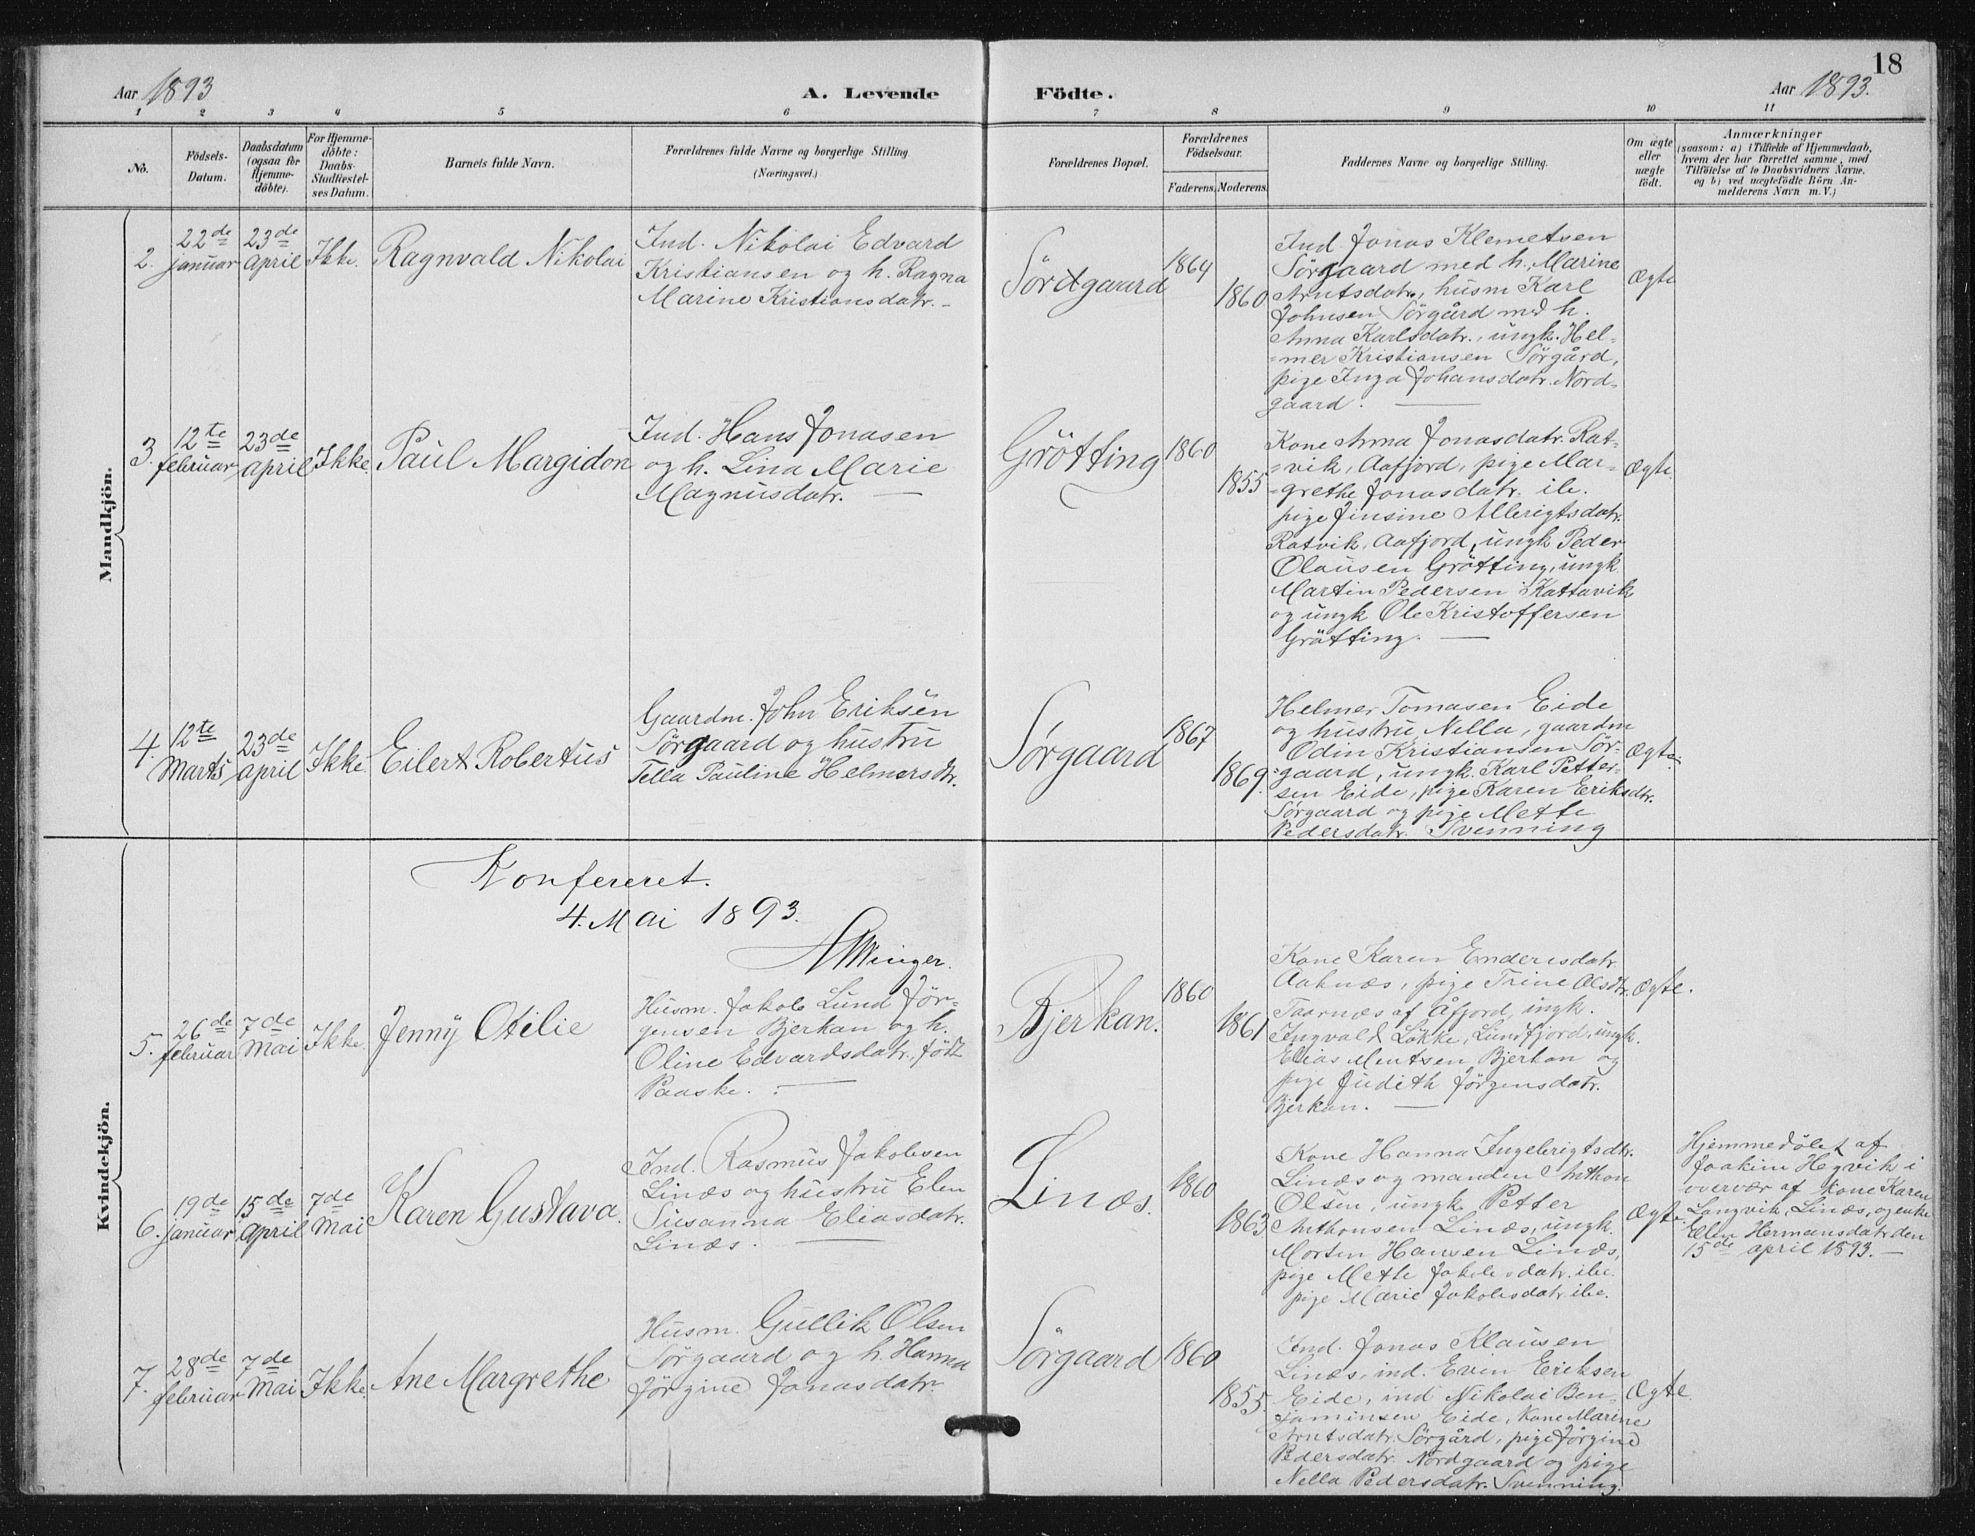 18
Aar 1893
A. Levende Födte.
Aar 1893.
1 2 3 4 5 6 7 8 9 10 11
No.
Födsels-
Datum.
Daabsdatum
(ogsaa for
Hjemme-
döbte).
For Hjemme-
döbte:
Daabs-
Stadfæstel-
ses Datum.
Barnets fulde Navn.
Forældrenes fulde Navne og borgerlige Stilling.
(Næringsvei.)
Forældrenes Bopæl.
Forældrenes
Födselsaar.
Faderens. Moderens.
Faddernes Navne og borgerlige Stilling.
Om ægte
eller
uægte
födt.
Anmærkninger
(saasom: a) i Tilfælde af Hjemmedaab,
hvem der har forrettet samme, med
Tilföielse af to Daabsvidners Navne,
og b) ved uægtefödte Börn An-
melderens Navn m. V.)
Mandkjön.
2.
22de
januar
23de
april
Ikke.
Ragnvald Nikolai
Ind. Nikolai Edvard
Kristiansen og h. Ragna
Marine Kristiansdatr. -
Sördgaard
1864
1860
Ind. Jonas Klemetsen
Sörgaard med h. Marine
Arntsdatr., husm Karl
Johnsen Sörgård med h.
Anna Karlsdatr., ungk. Hel-
-mer Kristiansen Sörgård,
pige Inga Johansdatr. Nord-
gaard.
Ægte
3.
12te
februar
23de
april
Ikke.
Paul Margidon
Ind. Hans Jonasen
og h. Lina Marie
Magnusdatr.
Grötting
1860
1855
Kone Anna Jonasdatr. Rat-
-vik, Aafjord, pige Mar-
-grethe Jonasdatr. ib.
pige Jinsine Allerigtsdatr.
Ratvik, Aafjord, ungk Peder
Olausen Grötting, ungk.
Martin Pedersen i Kattavik
og ungk Ole Kristoffersen
Grötting.
Ægte.
4.
12te
Marts
23de
april
Ikke.
Eilert Robertus
Gaardm. John Eriksen
Sörgaard og hustru
Tella Pauline Helmersdtr.
Sörgaard
1867
1869.
Helmer Tomasen Eide
og hustru Nella, gaardm
Odin Kristiansen Sör-
-gaard, ungk. Karl Petter-
sen Eide, pige Karen Eriksdtr.
Sörgaard og pige Mette
Pedersdatr. Svenning
Ægte.
Kvindekjön.
Konfereret.
4. Mai 1893.
Winger.
5.
26de
februar
7de
Mai
Ikke.
Jenny Otilie
Husm. Jakob Lund Jör-
gensen Bjerkan og h.
Oline Edvardsdatr. født
Paaske.
Bjerkan.
1860
1861
Kone Karen Endresdatr
Aaknæs, pige Trine Olsdtr.
Taarnæs af Åfjord, ungk.
Ingvald Løkke, ungk.
Elias Mentsen Bjerkan og
pige Judith Jörgensdatr.
Bjerkan.
Ægte.
6.
19de
januar
15de
april
7de
Mai
Karen Gustava.
Ind. Rasmus Jakobsen
Linæs og hustru Elen
Susanna Eliasdatr.
Linæs.
Linæs.
1860
1863
Kone Hanna Ingebrigtsdtr.
Linæs og manden Anthon
Olsen, ungk Petter
Anthonsen Linæs, ungk.
Morten Hansen Linæs,
pige Mette Jakobsdatr. ibi.
pige Marie Jakobsdatr. ibi.
Ægte.
Hjemmedøbt af
Joakim Hegvik i
overvær af kone Karen
Langvik, Linæs, og enke
Ellen Hermansdatr. den
15de april 1893. -
7.
28de
februar
7de
Mai
Ikke.
Ane Margrethe
Husm. Gullik Olsen
Sörgaard og h. Hanna
Jörgine Jonasdatr.
Sörgaard
1860
1855.
Ind. Jonas Klausen
Linæs, ind. Even Eriksen
Eide, ind Nikolai Ben-
jaminsen Eide, Kone Marine
Arntsdatr. Sörgård, pige Jörgine
Pedersdatr. Nordgaard og pige
Nella Pedersdatr. Svenning.
Ægte